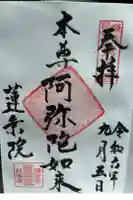 奉拝
令和六年
九月五日
本尊阿弥陀如来
蓮乗院